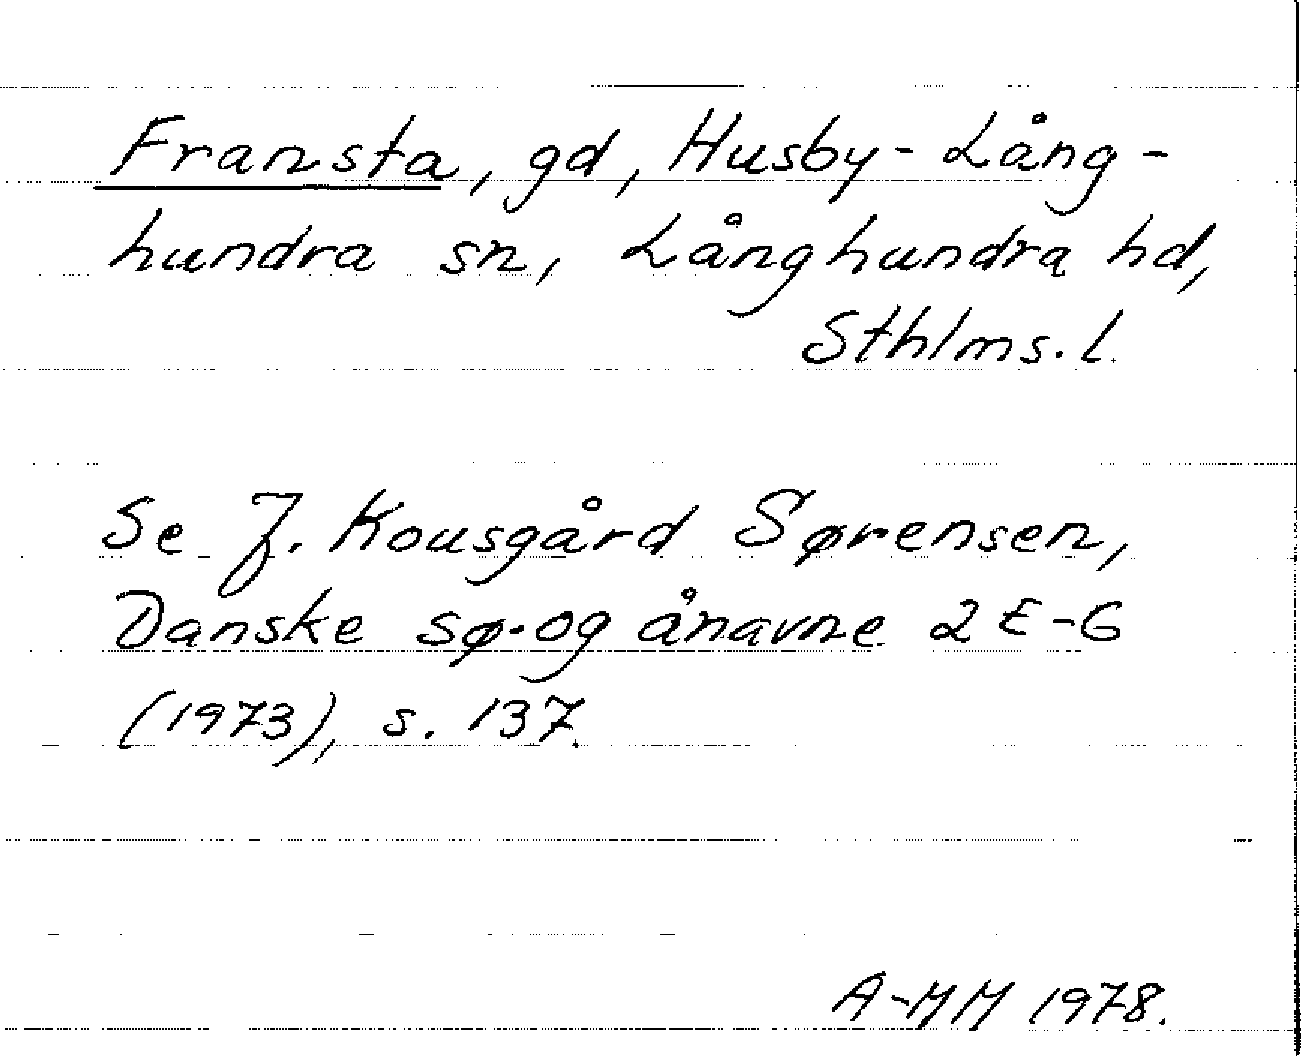 Fransta, gd, Husby-Lång-
hundra sn, Långhundra hd,
Sthlms. l.
Se J. Kousgård Sørensen,
Danske sø- og ånavne 2 E-G
(1973), s. 137.
A-MM 1978.